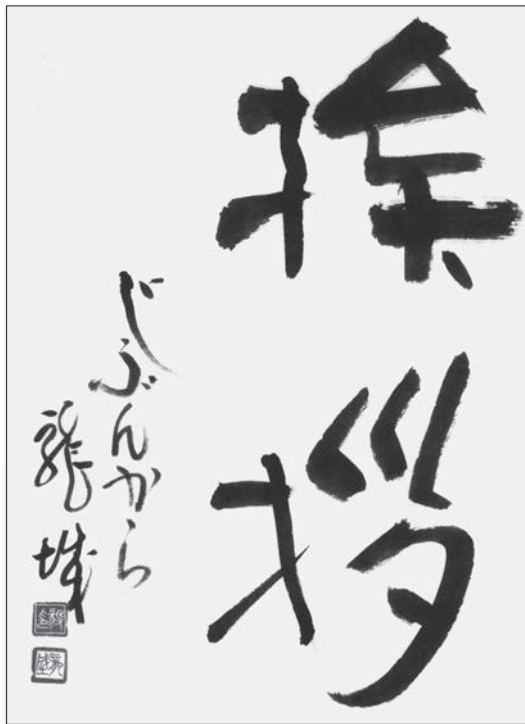 挨拶
じぶんから
龍城